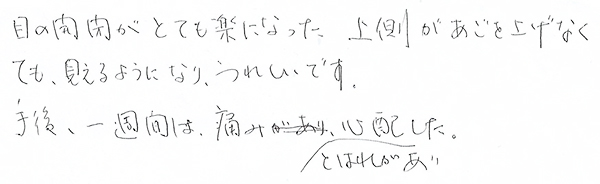 目の開閉がとても楽になった 上側があごを上げなく
ても、見えるようになり、うれしいです。
手後、一週間は、痛みがあり、心配した。
とはれがあり